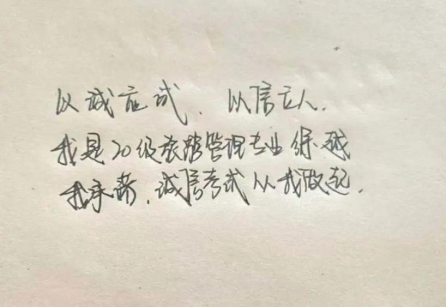 以诚应试，以信立人。
我是20级旅游管理专业
我承诺，诚信考试从我做起。